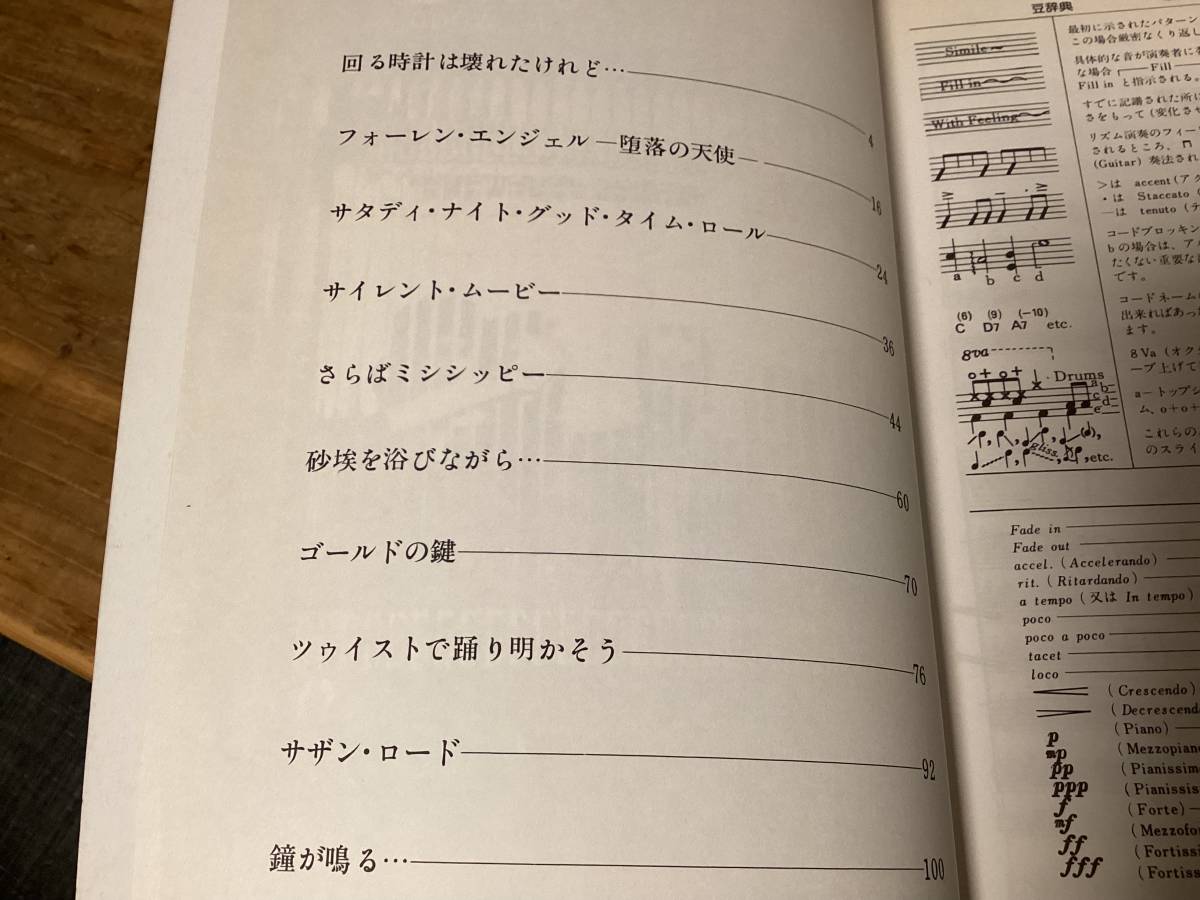 回る時計は壊れたけれど… 4
フォーレン・エンジェル —堕落の天使— 16
サタディ・ナイト・グッド・タイム・ロール 24
サイレント・ムービー 36
さらばミシシッピー 44
砂埃を浴びながら… 60
ゴールドの鍵 70
ツゥイストで踊り明かそう 76
サザン・ロード 92
鐘が鳴る… 100
豆辞典
Simile
Fill in
With Feeling
a b c d
(6) (9) (-10)
C D7 A7 etc.
8va
Drums
a b
c d
e
gliss.
etc.
最初に示されたパターン
この場合厳密なくり返し
具体的な音が演奏者に
な場合 Fill
Fill in と指示される。
すでに記譜された所に
さをもって(変化さ
リズム演奏のフィー
されるところ、
(Guitar) 奏法され
>は accent(アク
・は Staccato
—は tenuto (テ
コードブロッキン
bの場合は、ア
たくない重要な
です。
コードネーム
出来ればあっ
ます。
8Va (オク
ーブ上げて
a－トップシ
ム、o+o+
これらの
のスライ
Fade in
Fade out
accel. (Accelerando)
rit. (Ritardando)
a tempo (又は In tempo)
poco
poco a poco
tacet
loco
(Crescendo)
(Decrescend
p (Piano)
mp (Mezzopiano
pp (Pianissimo
ppp (Pianissis
f (Forte)
mf (Mezzofor
ff (Fortissi
fff (Fortiss